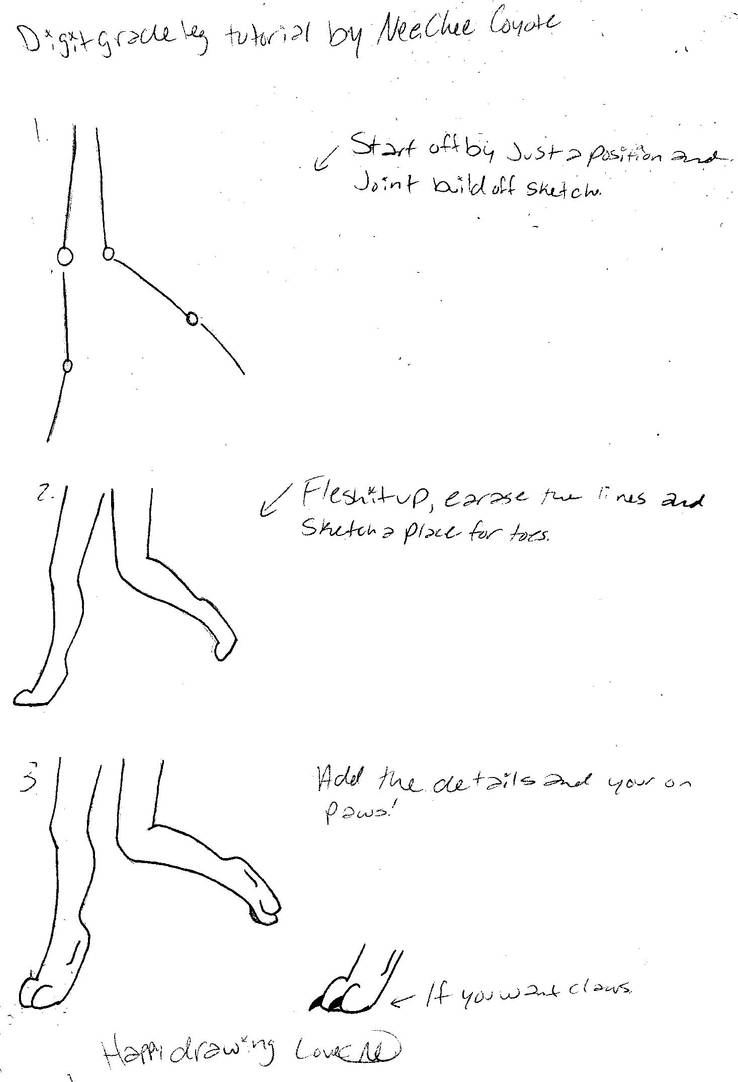 Digitgrade leg tutorial by NeeChee Coyote
1.
Start off by Just a position and
Joint build off sketch.
2.
Flesh it up, earase the lines and
Sketch a place for toes.
3
Add the details and your on
paws!
If you want claws.
Happi drawing Love